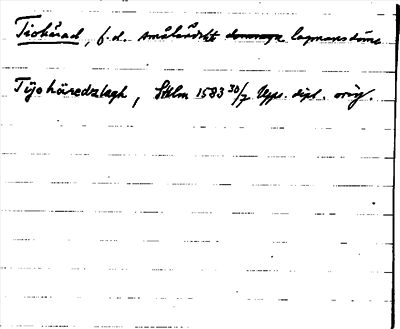 Tiohärad, f.d. småländskt lagmansdöme
Tijohäredzlagh, Sthlm 1583 30/7 Upps. dipl. orig.